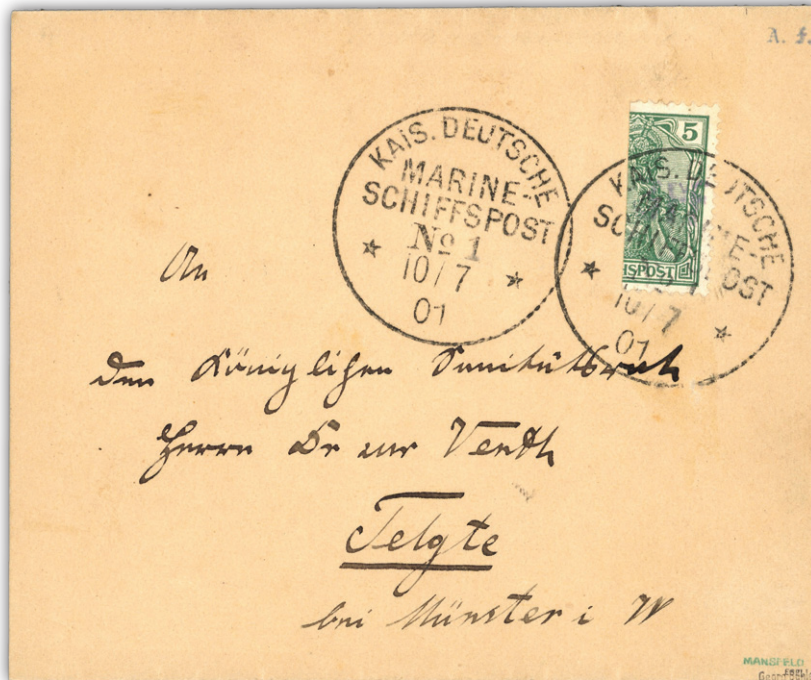 A.
5
KAIS. DEUTSCHE
MARINE-
SCHIFFSPOST
No 1
10/7
01
KAIS. DEUTSCHE
MARINE-
SCHIFFSPOST
10/7
01
HSPOST
An
den Königlichen Sanitätsrath
Herrn Dr
Telgte
bei Münster i W
MANSFELD